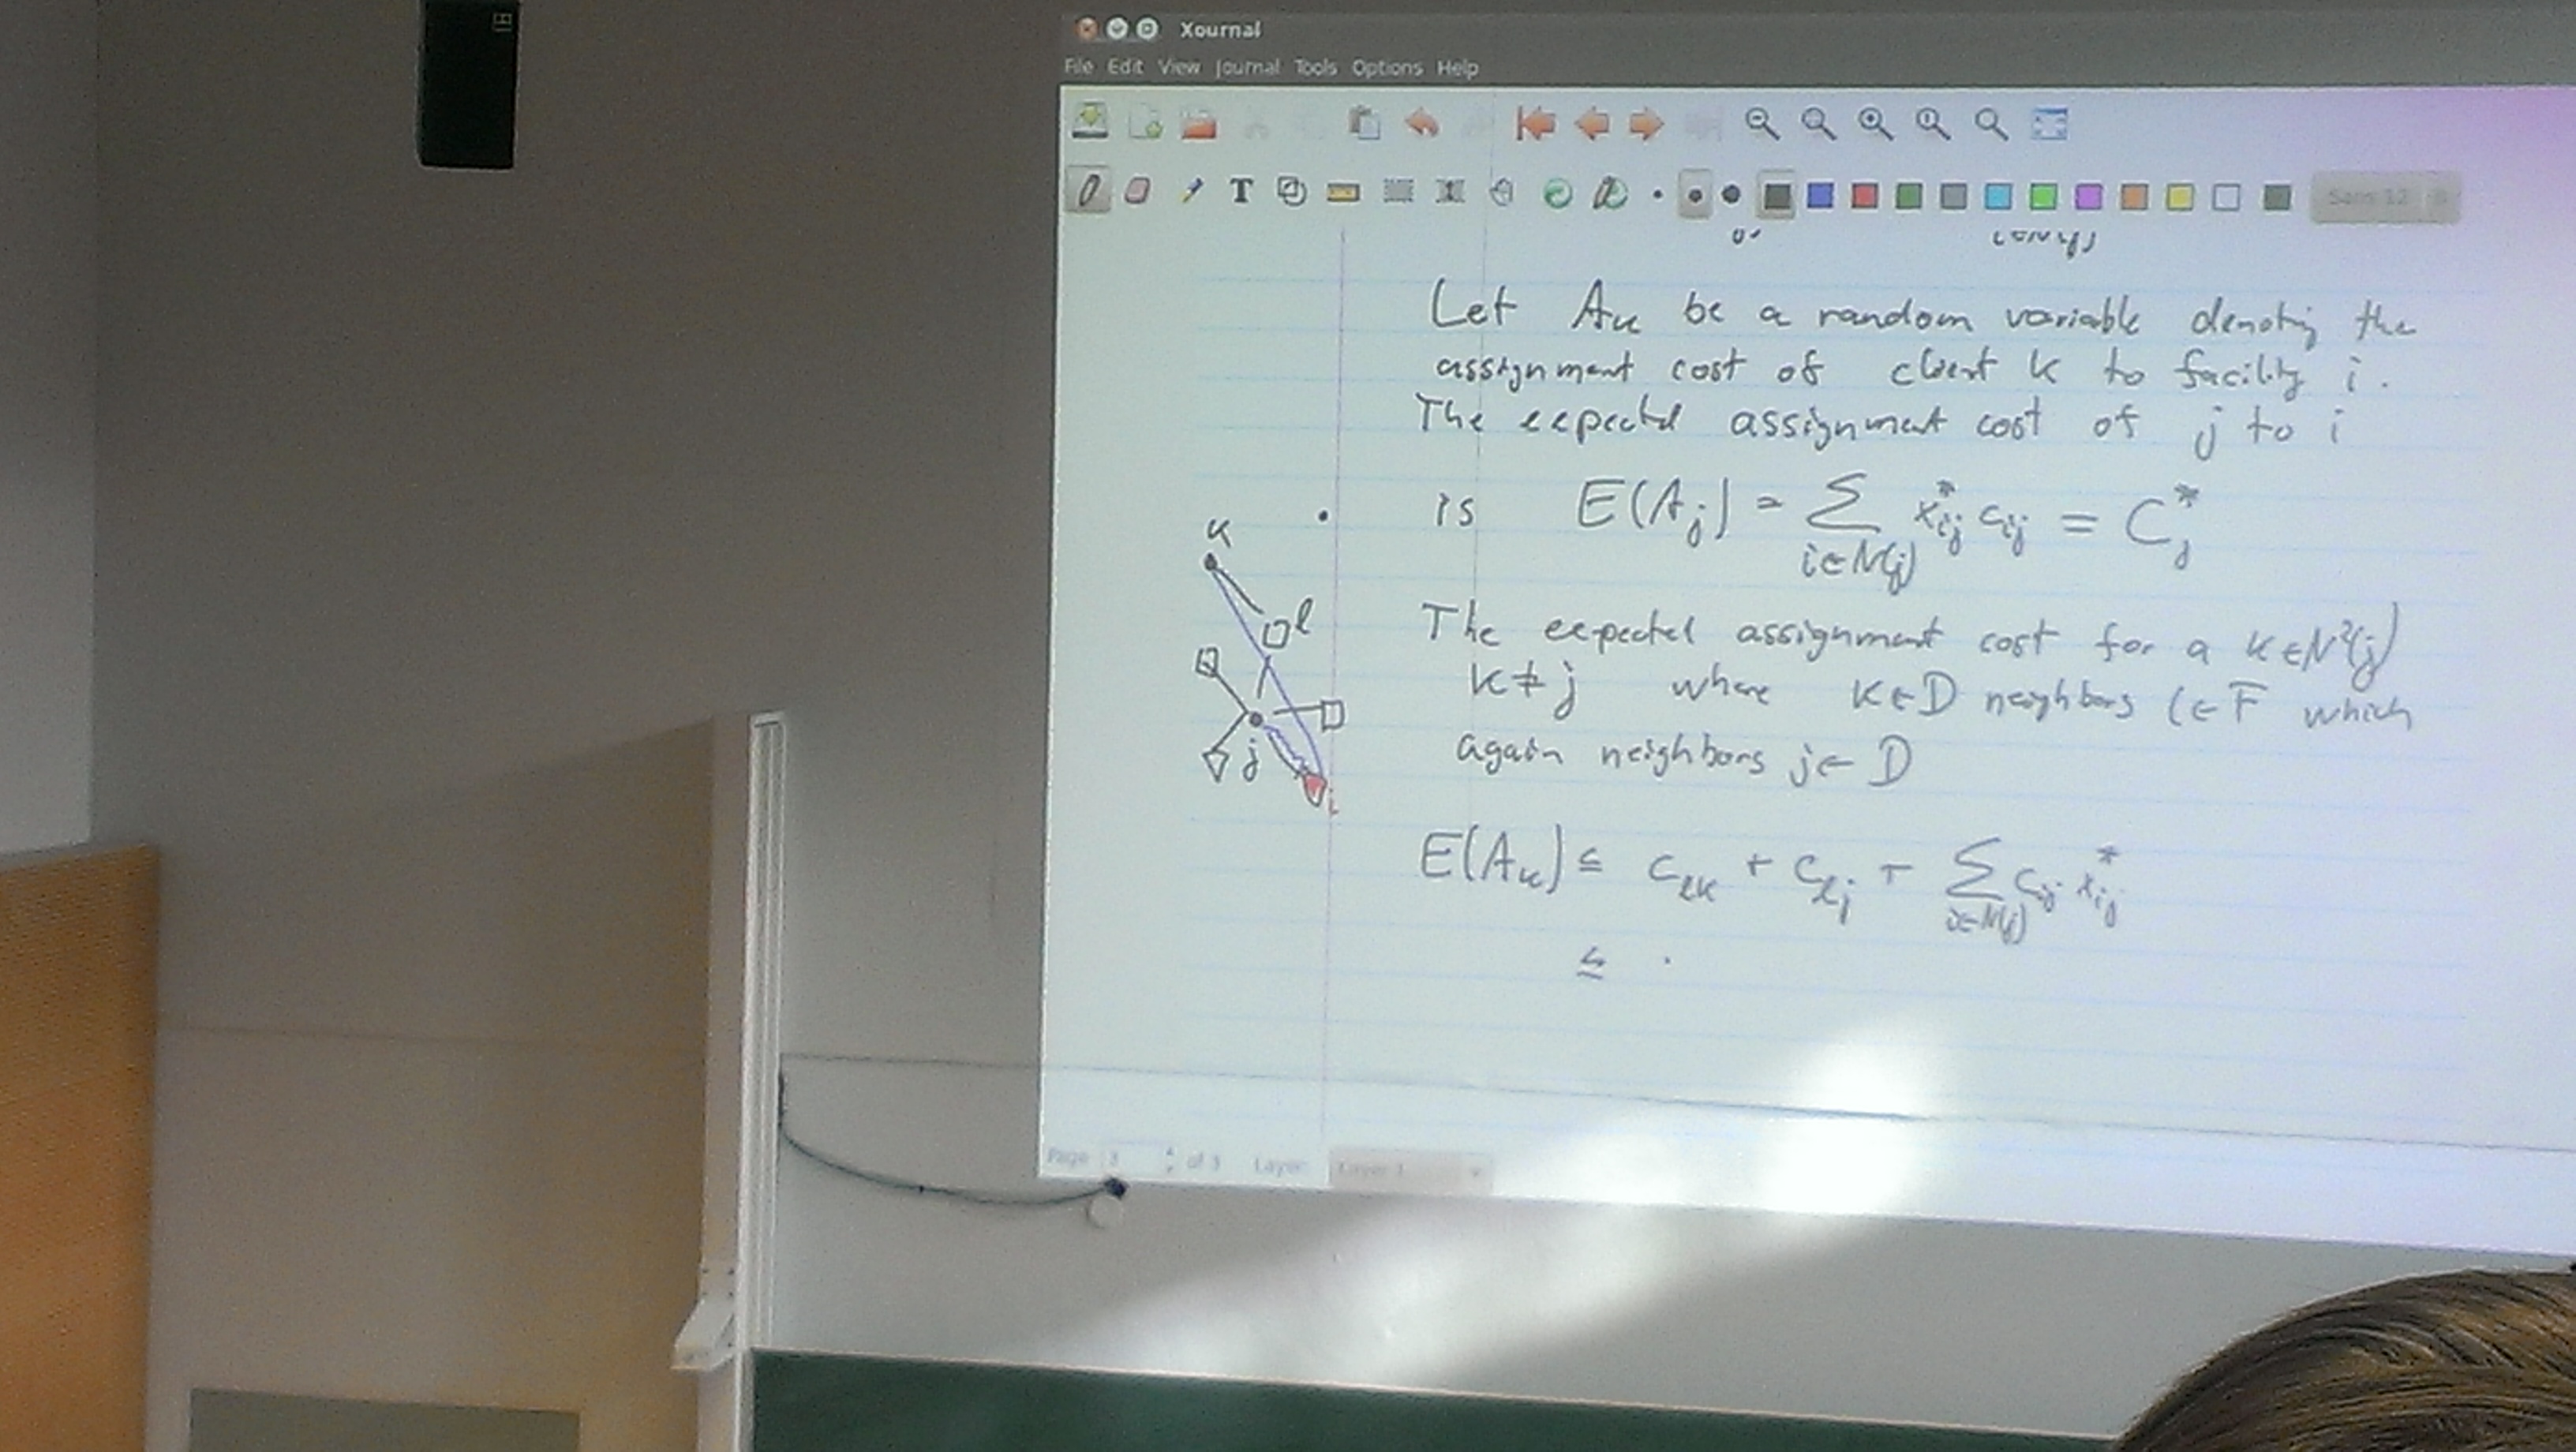 Xournal
File Edit View Journal Tools Options Help
T
Sans 12
Let A_k be a random variable denoting the
assignment cost of client k to facility i.
The expected assignment cost of j to i
is E(A_j) = ∑_{i∈N(j)} x*_{ij} c_{ij} = C*_j
k
l
The expected assignment cost for a k∈N²(j)
k≠j where k∈D neighbors l∈F which
j
i
again neighbors j∈D
E(A_k) ≤ c_{lk} + c_{lj} + ∑_{i∈N(j)} c_{ij} x*_{ij}
≤ .
Page 3 of 3 Layer: Layer 1